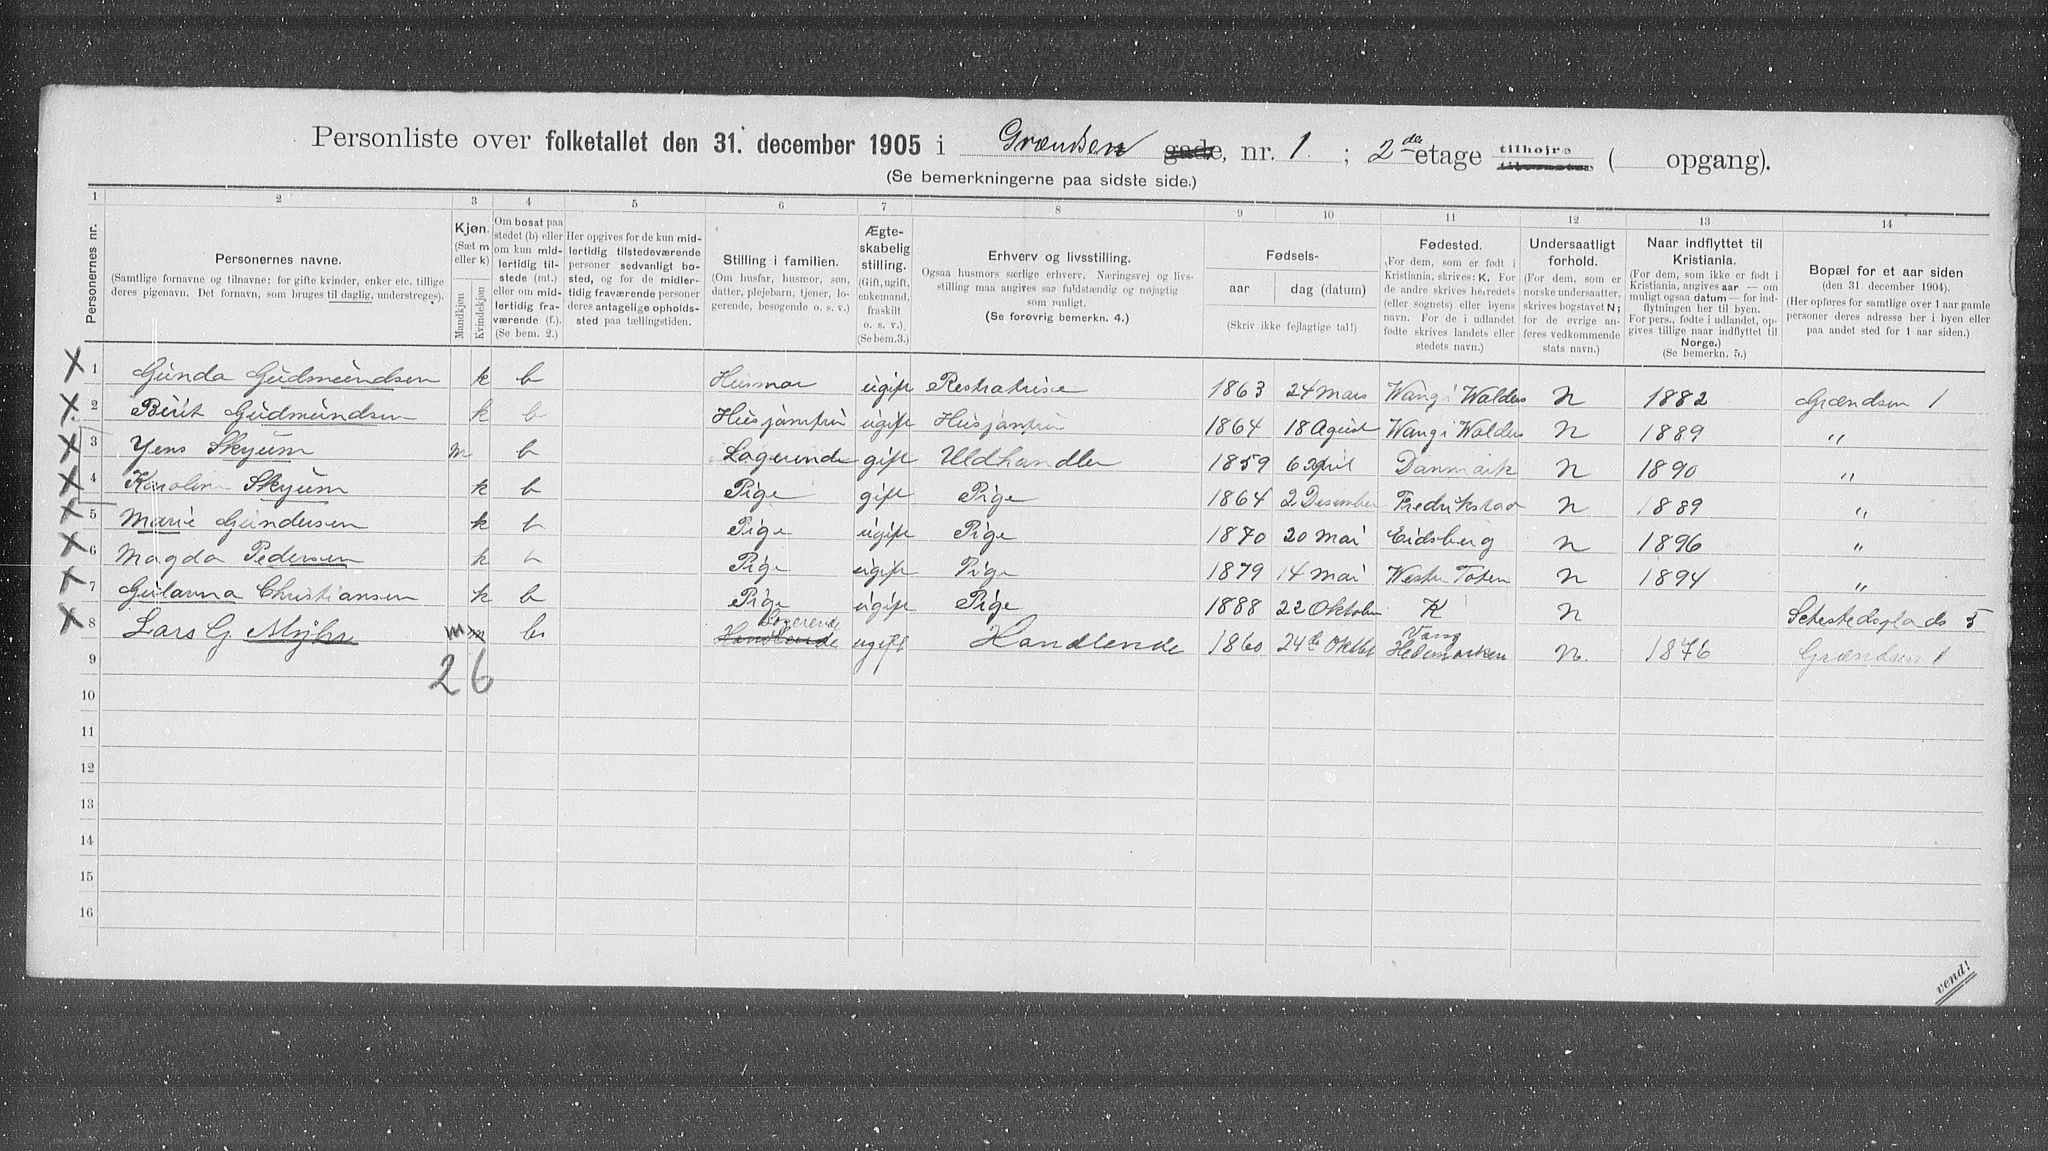 Personliste over folketallet den 31. december 1905 i Grændsen gade, nr. 1. ; 2den etage tilhøjre tilvenstre ( opgang).
(Se bemerkningerne paa sidste side.)
1 2 3 4 5 6 7 8 9 10 11 12 13 14
Personernes nr.
Personernes navne.
(Samtlige fornavne og tilnavne; for gifte kvinder, enker etc. tillige deres pigenavn. Det fornavn, som bruges til daglig, understreges).
Kjøn. (Sæt m eller k) Mandkjøn. Kvindekjøn
Om bosat paa stedet (b) eller om kun midlertidig tilstede (mt.) eller om midlertidig fraværende (f.). (Se bem. 2.)
Her opgives for de kun midlertidig tilstedeværende personer sedvanligt bosted, og for de midlertidig fraværende personer deres antagelige opholdssted paa tællingstiden.
Stilling i familien. (Om husfar, husmor, søn, datter, plejebarn, tjener, logerende, besøgende o. s. v.)
Ægteskabelig stilling. (Gift, ugift, enkemand, fraskilt o. s. v.). (Se bem.3.)
Erhverv og livsstilling. Ogsaa husmors særlige erhverv. Næringsvej og livsstilling maa angives saa fuldstændig og nøjagtig som muligt. (Se forøvrig bemerkn. 4.)
Fødsels- aar dag (datum) (Skriv ikke fejlagtige tal!)
Fødested. (For dem, som er født i Kristiania, skrives: K. For de andre skrives herredets (eller sognets) eller byens navn. For de i udlandet fødte skrives landets eller stedets navn.)
Undersaatligt forhold. (For dem, som er norske undersaatter, skrives bogstavet N; for de øvrige anføres vedkommende stats navn.)
Naar indflyttet til Kristiania. (For dem, som ikke er født i Kristiania, angives aar — om muligt ogsaa datum — for indflytningen her til byen. For pers., fødte i udlandet, opgives tillige naar indflyttet til Norge.) (Se bemerkn. 5.)
Bopæl for et aar siden (den 31. december 1904). (Her opføres for samtlige over 1 aar gamle personer deres adresse her i byen eller paa andet sted for 1 aar siden.)
X 1 Gunda Gudmundsen k b Husmor ugift Restratrise 1863 24 Mars Wang i Walders N 1882 Grændsen 1
X 2 Birit Gudmundsen k b Husjomfru ugift Husjomfru 1864 18 Agust Wang i Walders N 1889 "
X 3 Yens Skyum m b Logerende gift Uldhandler 1859 6 April Danmark N 1890 "
X 4 Karoline Skyum k b Pige gift Pige 1864 2 Desember Fredrikstad N 1889 "
X 5 Marie Gundersen k b Pige ugift Pige 1870 20 Mai Eidsberg N 1896 "
X 6 Magda Pedersen k b Pige ugift Pige 1879 14 Mai Wester Toten N 1894 "
X 7 Gulanna Christiansen k b Pige ugift Pige 1888 22 Oktober K N Sehestedsplads 5
X 8 Lars G m m b Handlende Logerende ugift Handlende 1860 24de Oktober Vang Hedemarken N. 1876 Grændsen 1
9 2 6
10
11
12
13
14
15
16
vend!